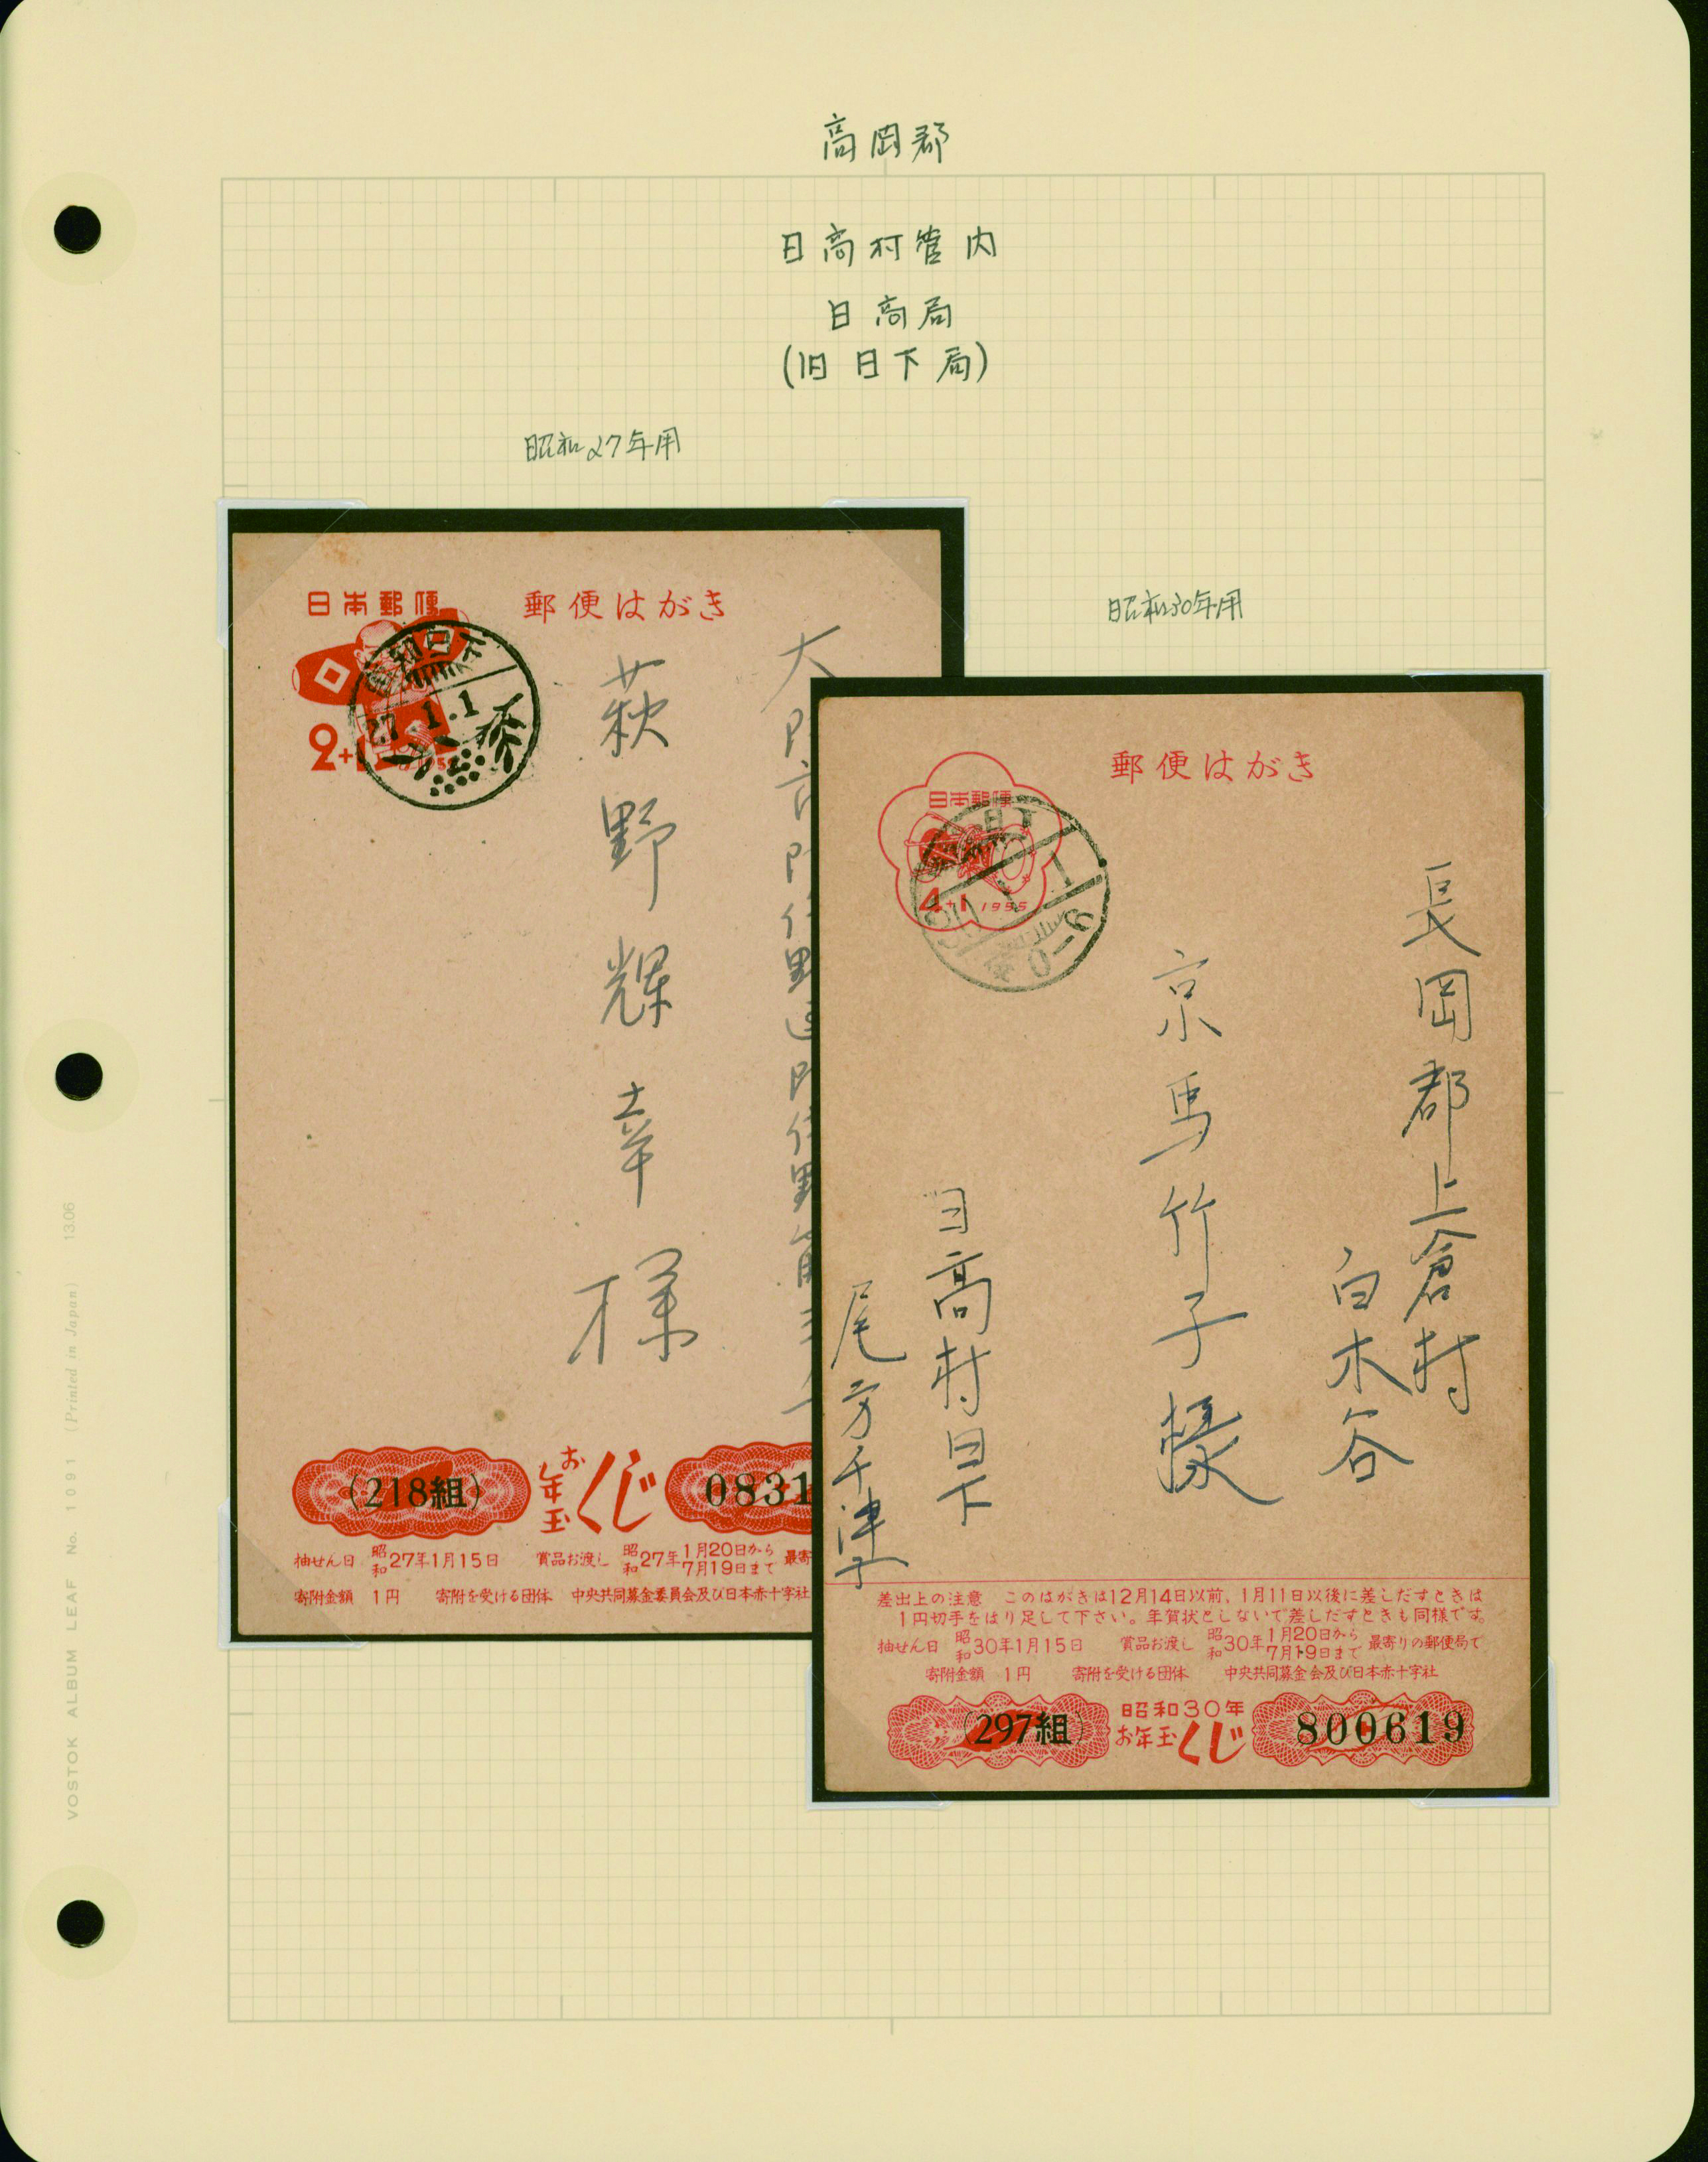 高岡郡
日高村管内
日高局
(旧 日下局)
昭和27年用
昭和30年用
日本郵便
郵便はがき
高知・日下
27.1.1
2+1
1952
萩野輝幸様
(218組)
お年玉くじ
0831
抽せん日 昭和27年1月15日 賞品お渡し 昭和27年1月20日から7月19日まで 最寄
寄附金額 1円 寄附を受ける団体 中央共同募金委員会及び日本赤十字社
郵便はがき
日本郵便
4+1 1955
日下
0-6
長岡郡上倉村
白木谷
京馬竹子様
日高村日下
差出上の注意 このはがきは12月14日以前、1月11日以後に差しだすときは
1円切手をはり足して下さい。年賀状としないで差しだすときも同様です。
抽せん日 昭和30年1月15日 賞品お渡し 昭和30年1月20日から7月19日まで 最寄りの郵便局で
寄附金額 1円 寄附を受ける団体 中央共同募金会及び日本赤十字社
(297組)
昭和30年
お年玉くじ
800619
VOSTOK ALBUM LEAF No. 1091 (Printed in Japan) 1306